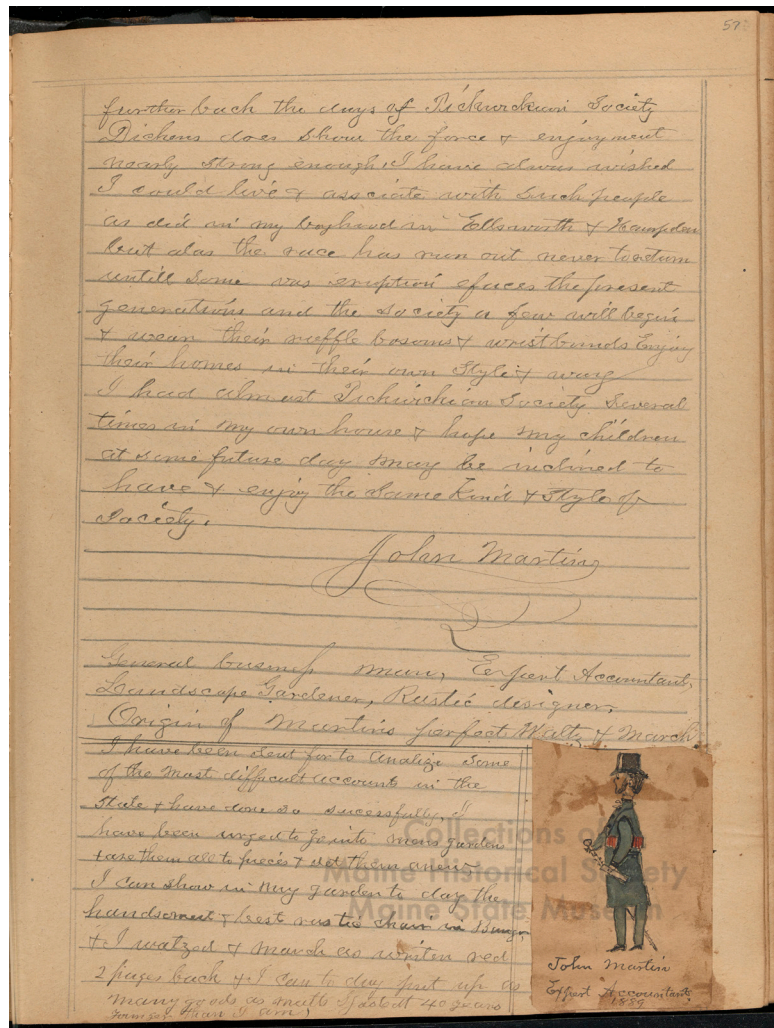 597
further back the days of Pickwickian Society
Dickens does show the force & enjoyment
nearly strong enough. I have always wished
I could live & associate with such people
as did in my boyhood in Ellsworth & Hampden
but alas the race has run out never to return
untill some vas eruption efaces the present
generations and the society a few will begin
& wear their ruffle bosoms & wristbands Enjoy
their homes in their own Style & way
I had almost Pickwickian Society Several
times in my own house & hope my children
at some future day may be inclined to
have & enjoy the Same Kind & Style of
Society.
John Martin
General business man, Expert Accountant,
Landscape Gardener, Rustic designer.
Origin of Martins perfect Waltz & March
I have been sent for to Analize Some
of the most difficult accounts in the
State & have done so sucessfully, I
have been urged to go into mens gardens
& take them all to pieces & set them anew
I can show in my garden to day the
handsomest & best rustic chair in Bangor
& I waltzed & march as writen red
2 pages back & I can to day put up as
many goods as
younger than I am,
John Martin
Expert Accountant
1889
Collections of
Maine Historical Society
Maine State Museum